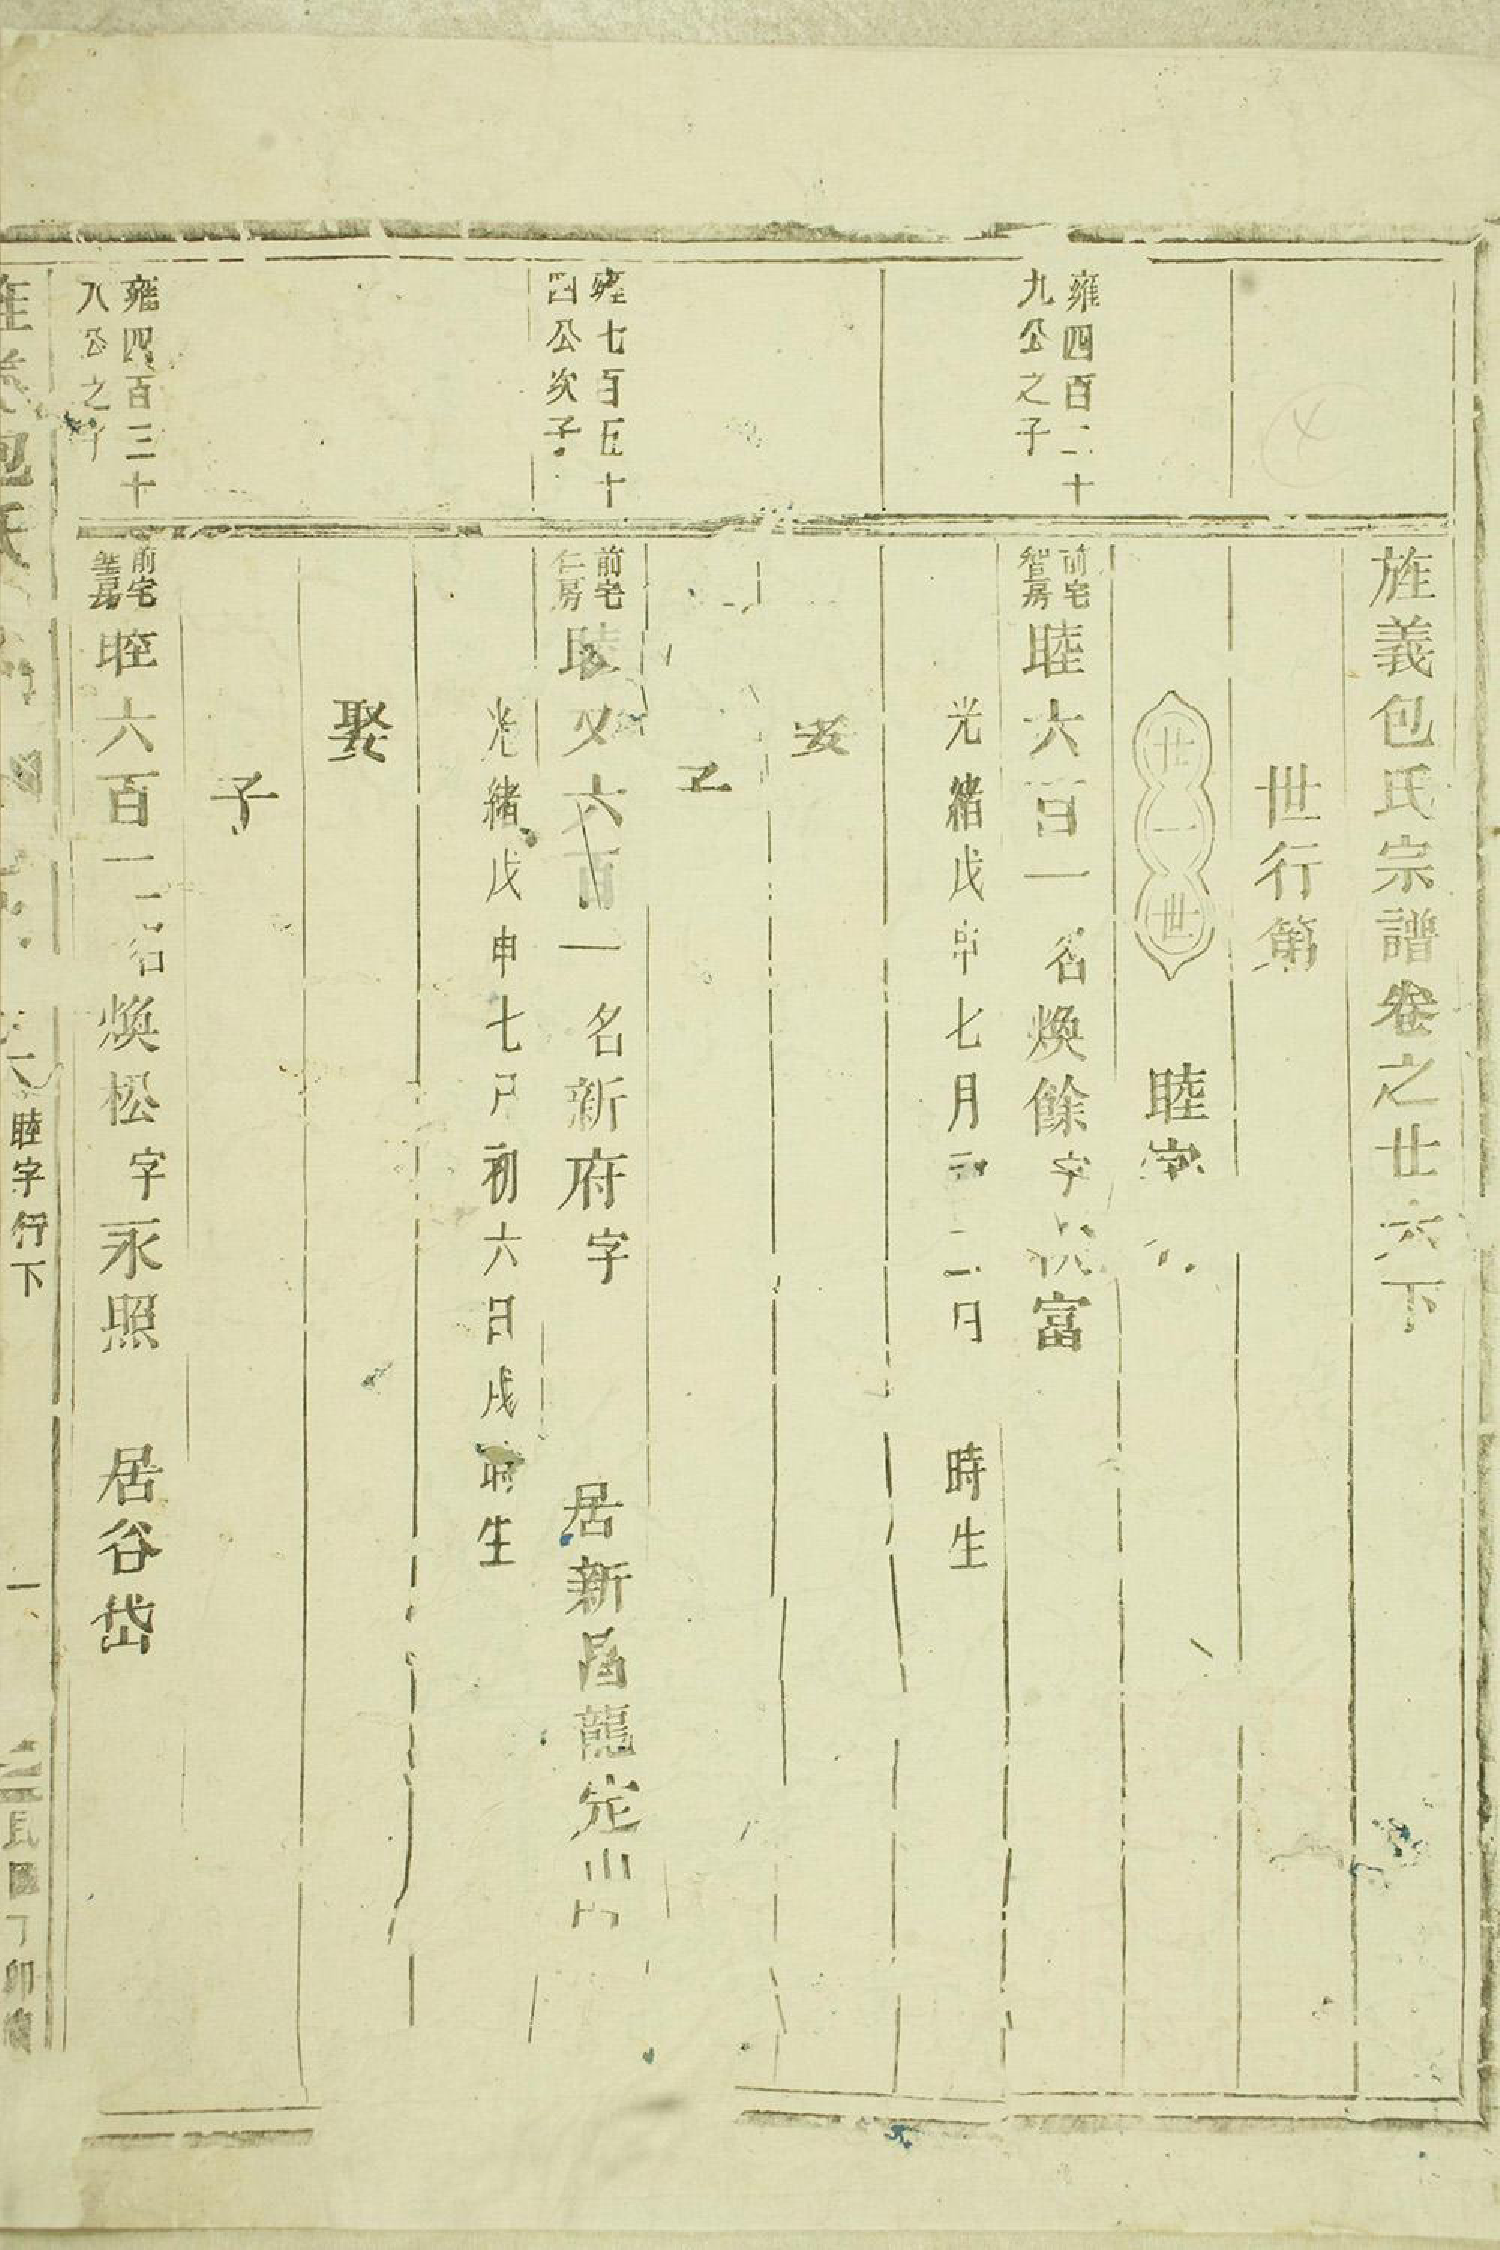 旌義包氏宗譜卷之廿六下
世行第
廿一世
睦字行
雍四百二十
九公之子
前宅
智房
睦六百一 名煥餘字 富
光緒戊申七月 二日 時生
娶
子
雍七百五十
四公次子
前宅
仁房
睦又六百一 名新府字 居新昌龍
光緒戊申七月初六日戌時生
娶
子
雍四百三十
八公之子
前宅
睦六百二名煥松字永照 居谷岱
旌義包氏
睦字行下
一
民國丁卯